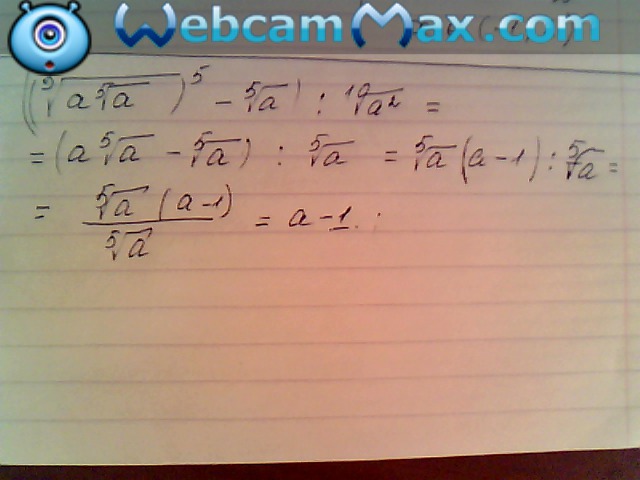 WebcamMax.com
((⁵√(a ⁵√a))⁵ - ⁵√a) : ¹⁰√a² =
= (a ⁵√a - ⁵√a) : ⁵√a = ⁵√a (a - 1) : ⁵√a =
= ⁵√a (a - 1) / ⁵√a = a - 1.